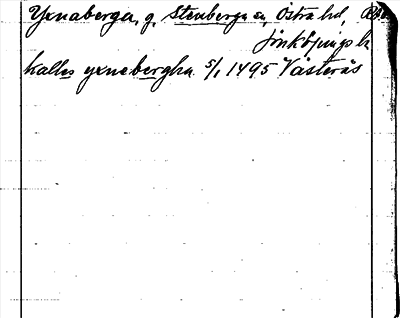 Yxnaberga, g. Stenberga sn, Östra hd,
Jönköpings l.
kalles yxnebergha 5/1 1495 Västerås